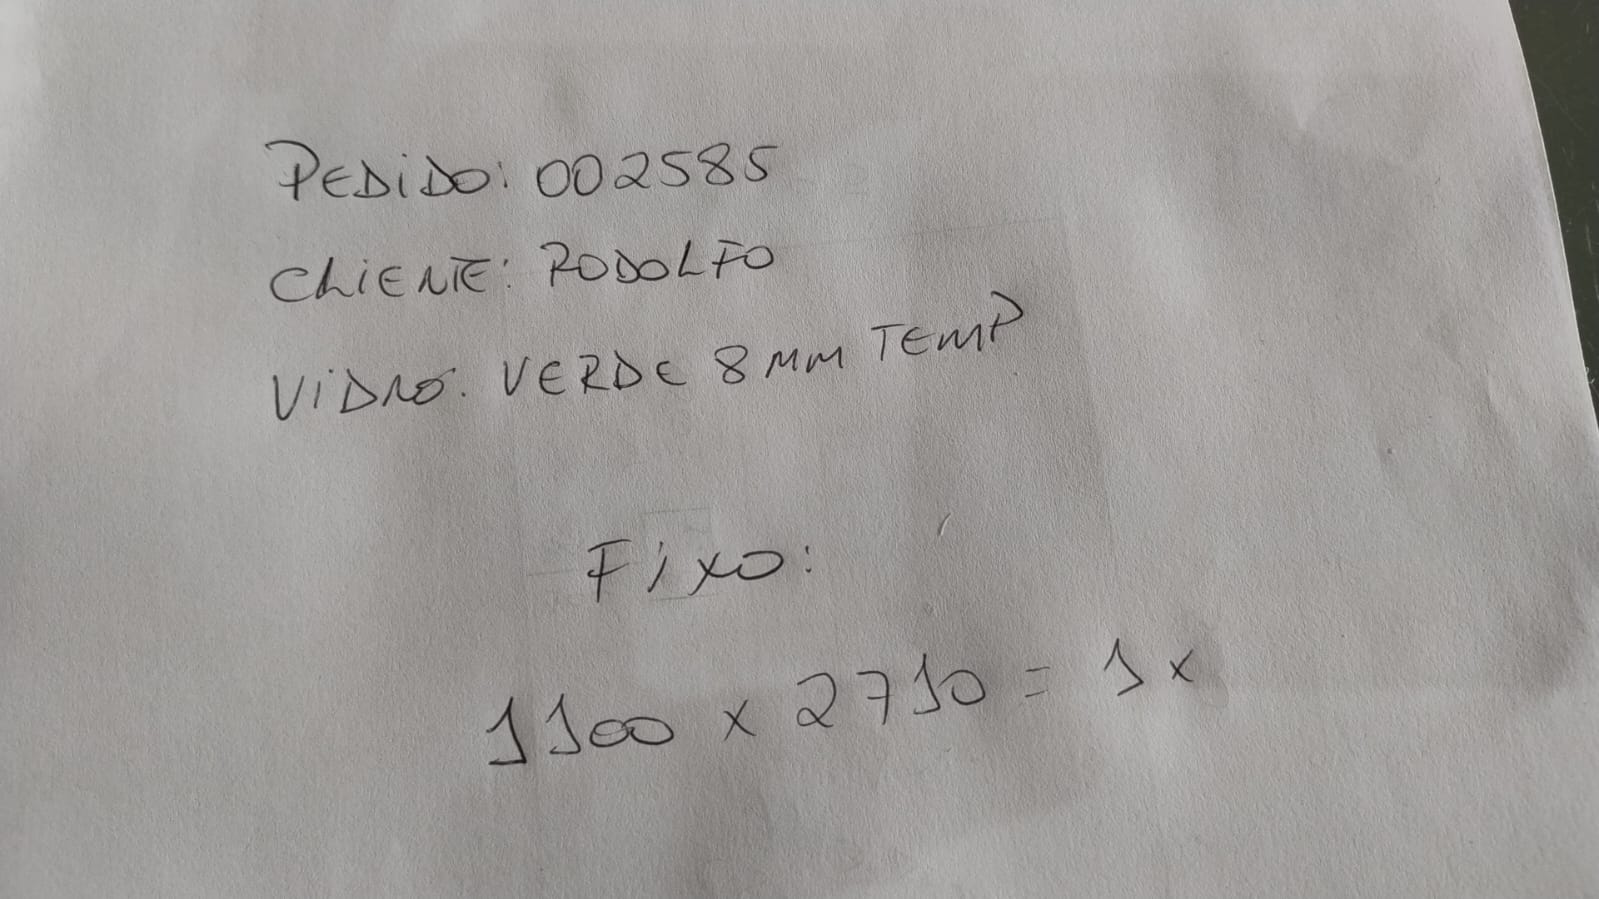 PEDIDO: 002585
CLIENTE: RODOLFO
VIDRO. VERDE 8MM TEMP
FIXO:
1100 x 2710 = 1x